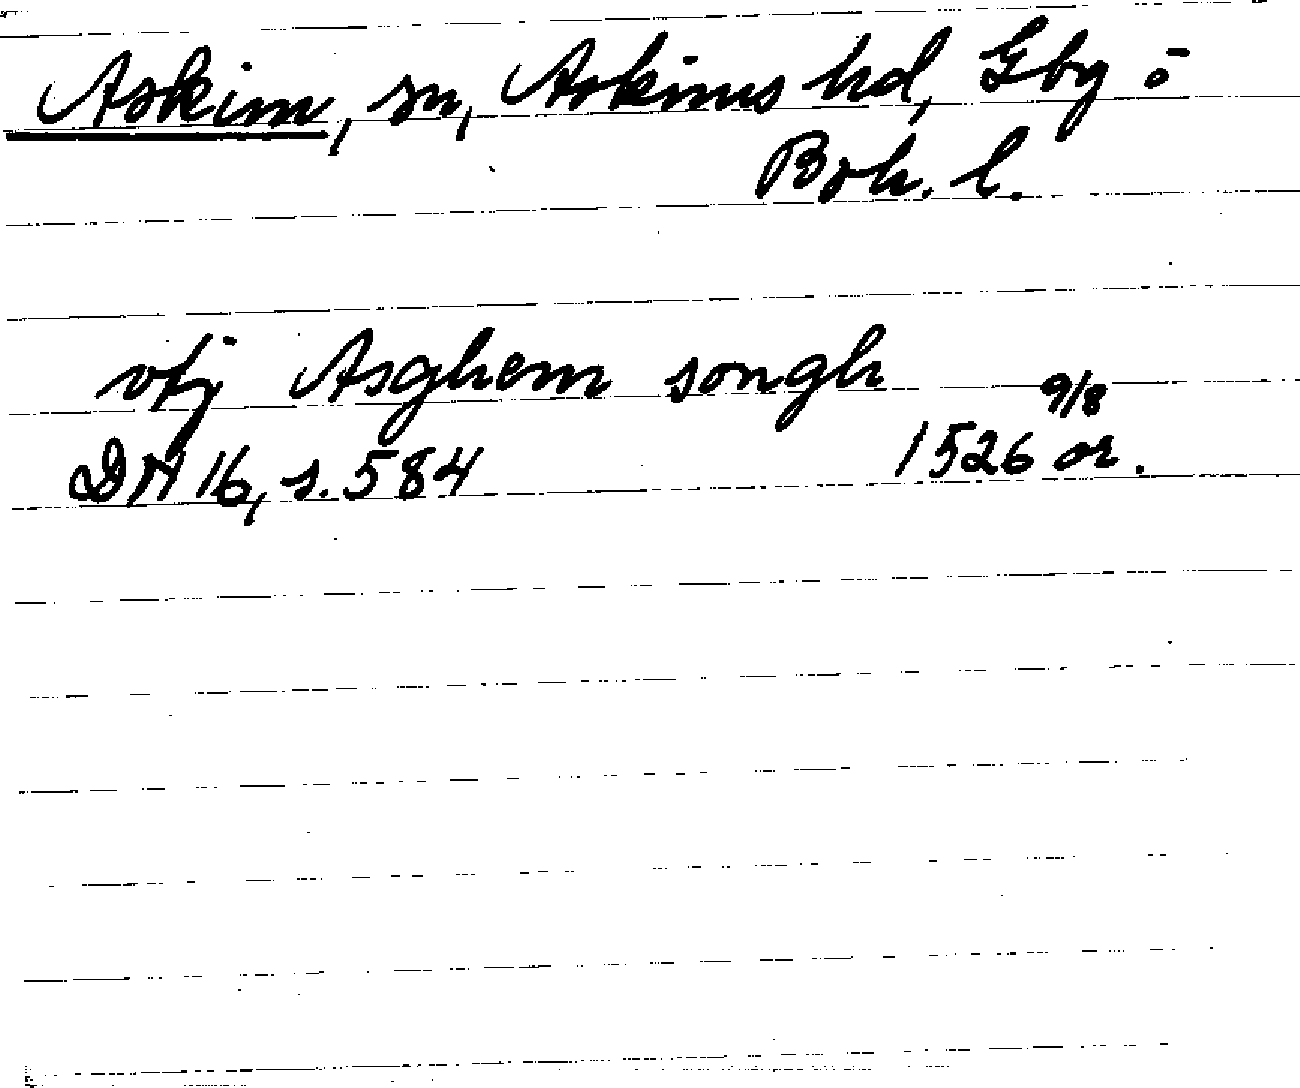 Askim, sn, Askims hd, Gbg o
Boh. l.
vtj Asghem songh
9/8
DN 16, s. 584 1526 or.